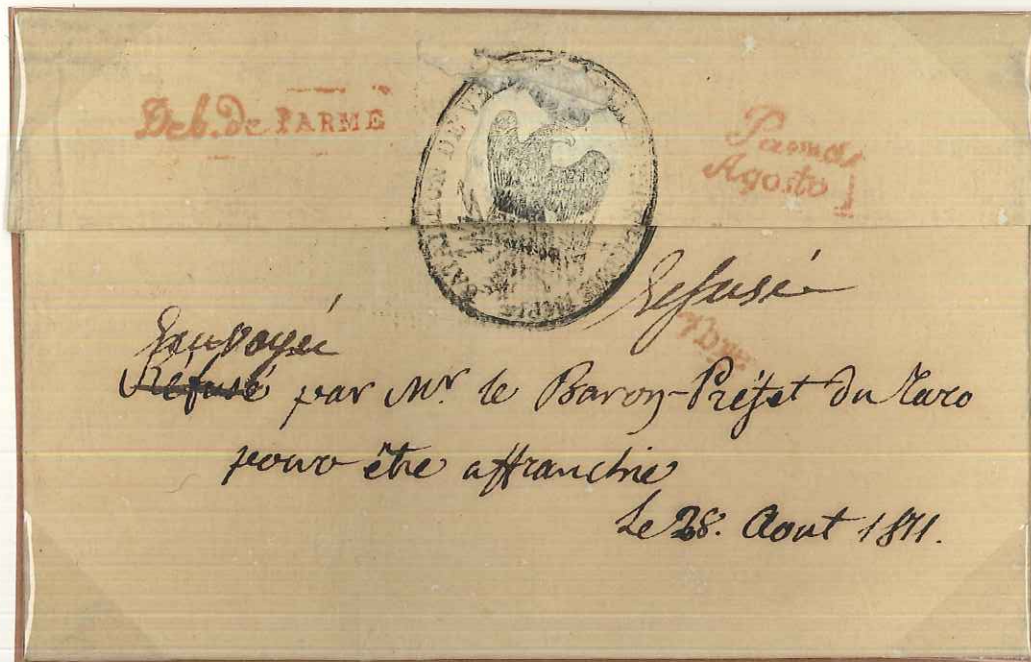 Deb. de PARME
Parma
Agosto
BATAILLON DE
Refusé
Renvoyé
Réfusé par Mr. le Baron-Préfet du Taro
pour être affranchie
Le 28. Aout 1811.